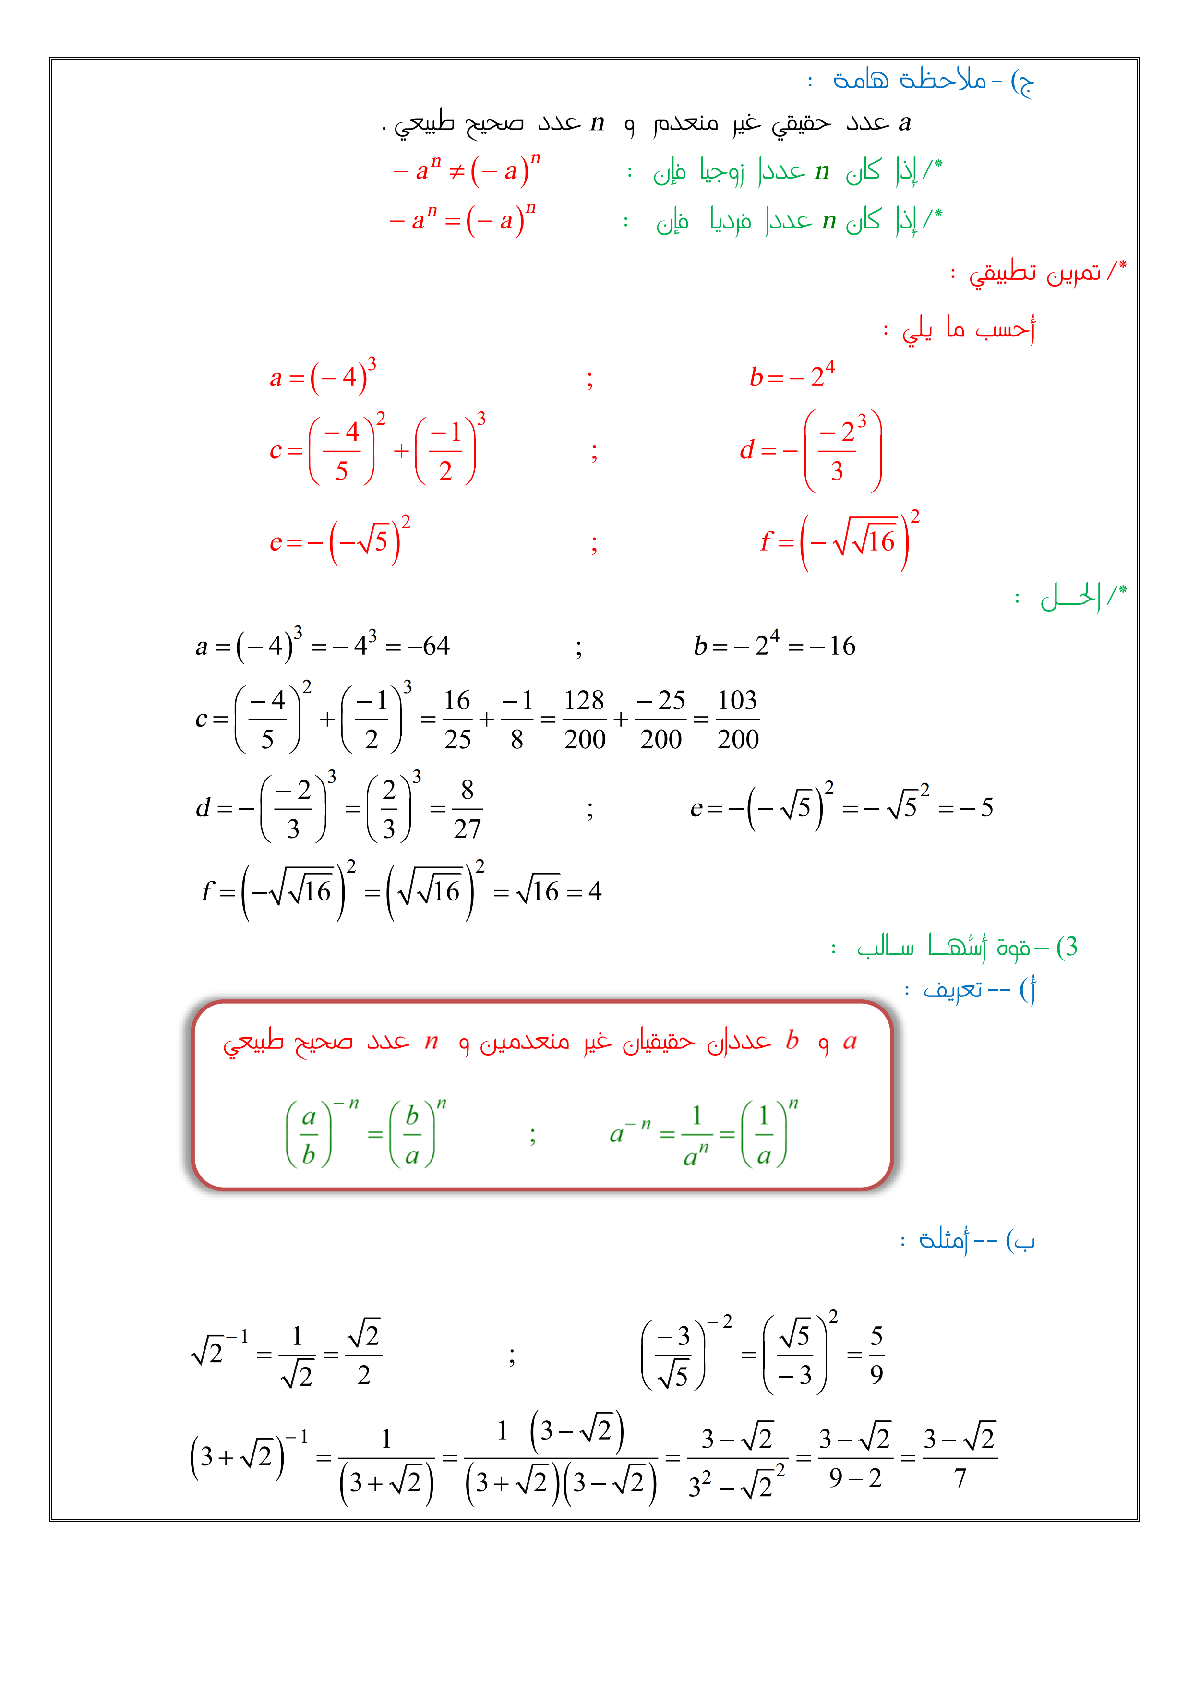 ج) - ملاحظة هامة :
a عدد حقيقي غير منعدم و n عدد صحيح طبيعي .
*/ إذا كان n عددا زوجيا فإن : − a^n ≠ (− a)^n
*/ إذا كان n عددا فرديا فإن : − a^n = (− a)^n
*/ تمرين تطبيقي :
أحسب ما يلي :
a = (− 4)^3 ; b = − 2^4
c = (− 4/5)^2 + (−1/2)^3 ; d = −(− 2^3/3)
e = −(−√5)^2 ; f = (− √√16)^2
*/ الحـــل :
a = (− 4)^3 = − 4^3 = −64 ; b = − 2^4 = −16
c = (− 4/5)^2 + (−1/2)^3 = 16/25 + −1/8 = 128/200 + −25/200 = 103/200
d = −(− 2/3)^3 = (2/3)^3 = 8/27 ; e = −(− √5)^2 = − √5^2 = − 5
f = (−√√16)^2 = (√√16)^2 = √16 = 4
3) – قوة أسّهـــا ســالب :
أ) -- تعريف :
a و b عددان حقيقيان غير منعدمين و n عدد صحيح طبيعي
(a/b)^− n = (b/a)^n ; a^− n = 1/a^n = (1/a)^n
ب) -- أمثلة :
√2^−1 = 1/√2 = √2/2 ; (−3/√5)^− 2 = (√5/−3)^2 = 5/9
(3 + √2)^−1 = 1/(3 + √2) = 1 (3 − √2)/(3 + √2)(3 − √2) = 3 − √2/3^2 − √2^2 = 3 − √2/9 − 2 = 3 − √2/7